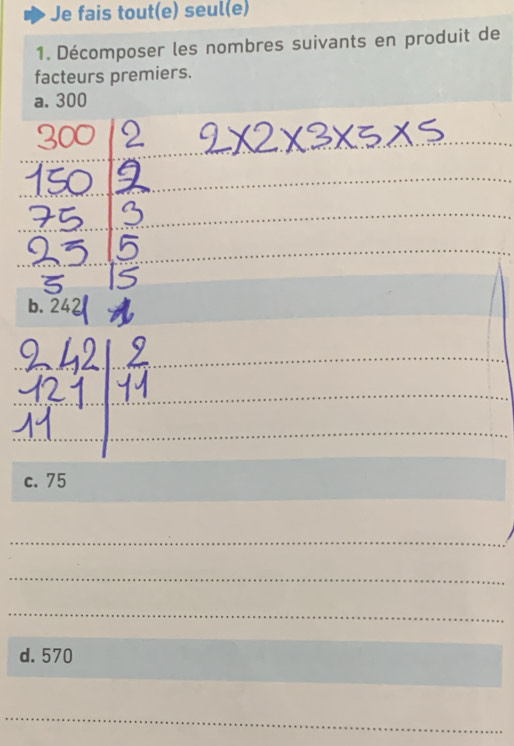 Je fais tout(e) seul(e)
1. Décomposer les nombres suivants en produit de
facteurs premiers.
a. 300
300 | 2 2×2×3×5×5
150 | 2
75 | 3
25 | 5
5 | 5
b. 242
242 | 2
121 | 11
11 |
c. 75
d. 570